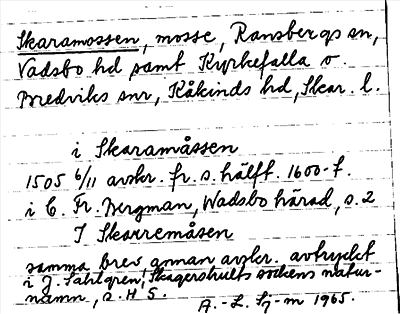 Skaramossen, mosse, Ransbergs sn,
Vadsbo hd samt Kyrkefalla o.
Bredviks snr, Kåkinds hd, Skar. l.
i Skaramåssen
1505 6/11 avskr. fr. s. hälft. 1600-t.
i C. Fr. Bergman, Wadsbo härad, s. 2
I Skarremåsen
samma brev annan avskr. avtryckt
i J. Sahlgren, Skagershults sockens natur-
namn, s. H 5.
A.-L. Sj-m 1965.